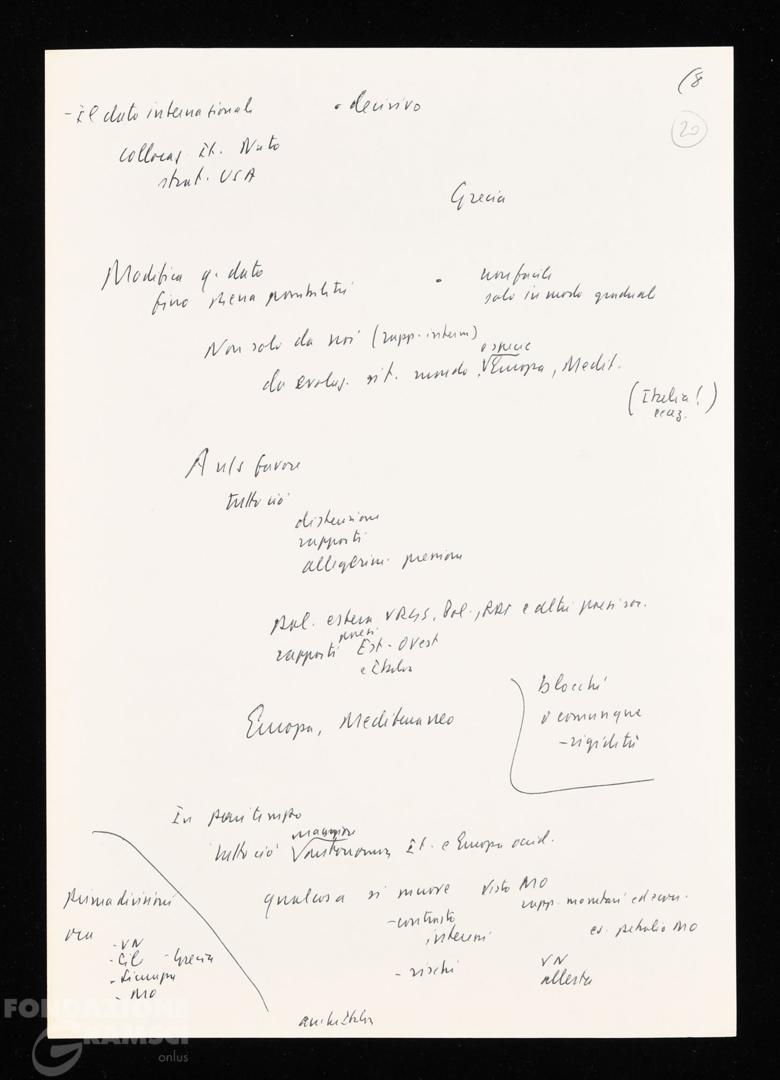 (8
20
- Il dato internazionale • decisivo
collocaz. It. Nato
strat. USA
Grecia
Modifica q. dato • non facile
fino piena possibilità solo in modo graduale
Non solo da noi (rapp. interni)
specie
da evoluz. sit. mondo, Europa, Medit.
(Italia!)
A n/s favore
tutto ciò
distensione
rapporti
allegerim. pressione
Pol. estera URSS, Pol., RDT e altri paesi soc.
paesi
rapporti Est-Ovest
e Italia
blocchi
Europa, Mediterraneo
o comunque
- rigidità
In pari tempo
maggiore
tutto ciò autonomia It. e Europa occid.
prima divisioni
qualcosa si muove visto MO
rapp. monetari ed econ.
- contrasto
ora interni es. petrolio MO
- VN
- Cil - Grecia
- rischi VN
- MO
allerta
anche Italia
FONDAZIONE
GRAMSCI
onlus